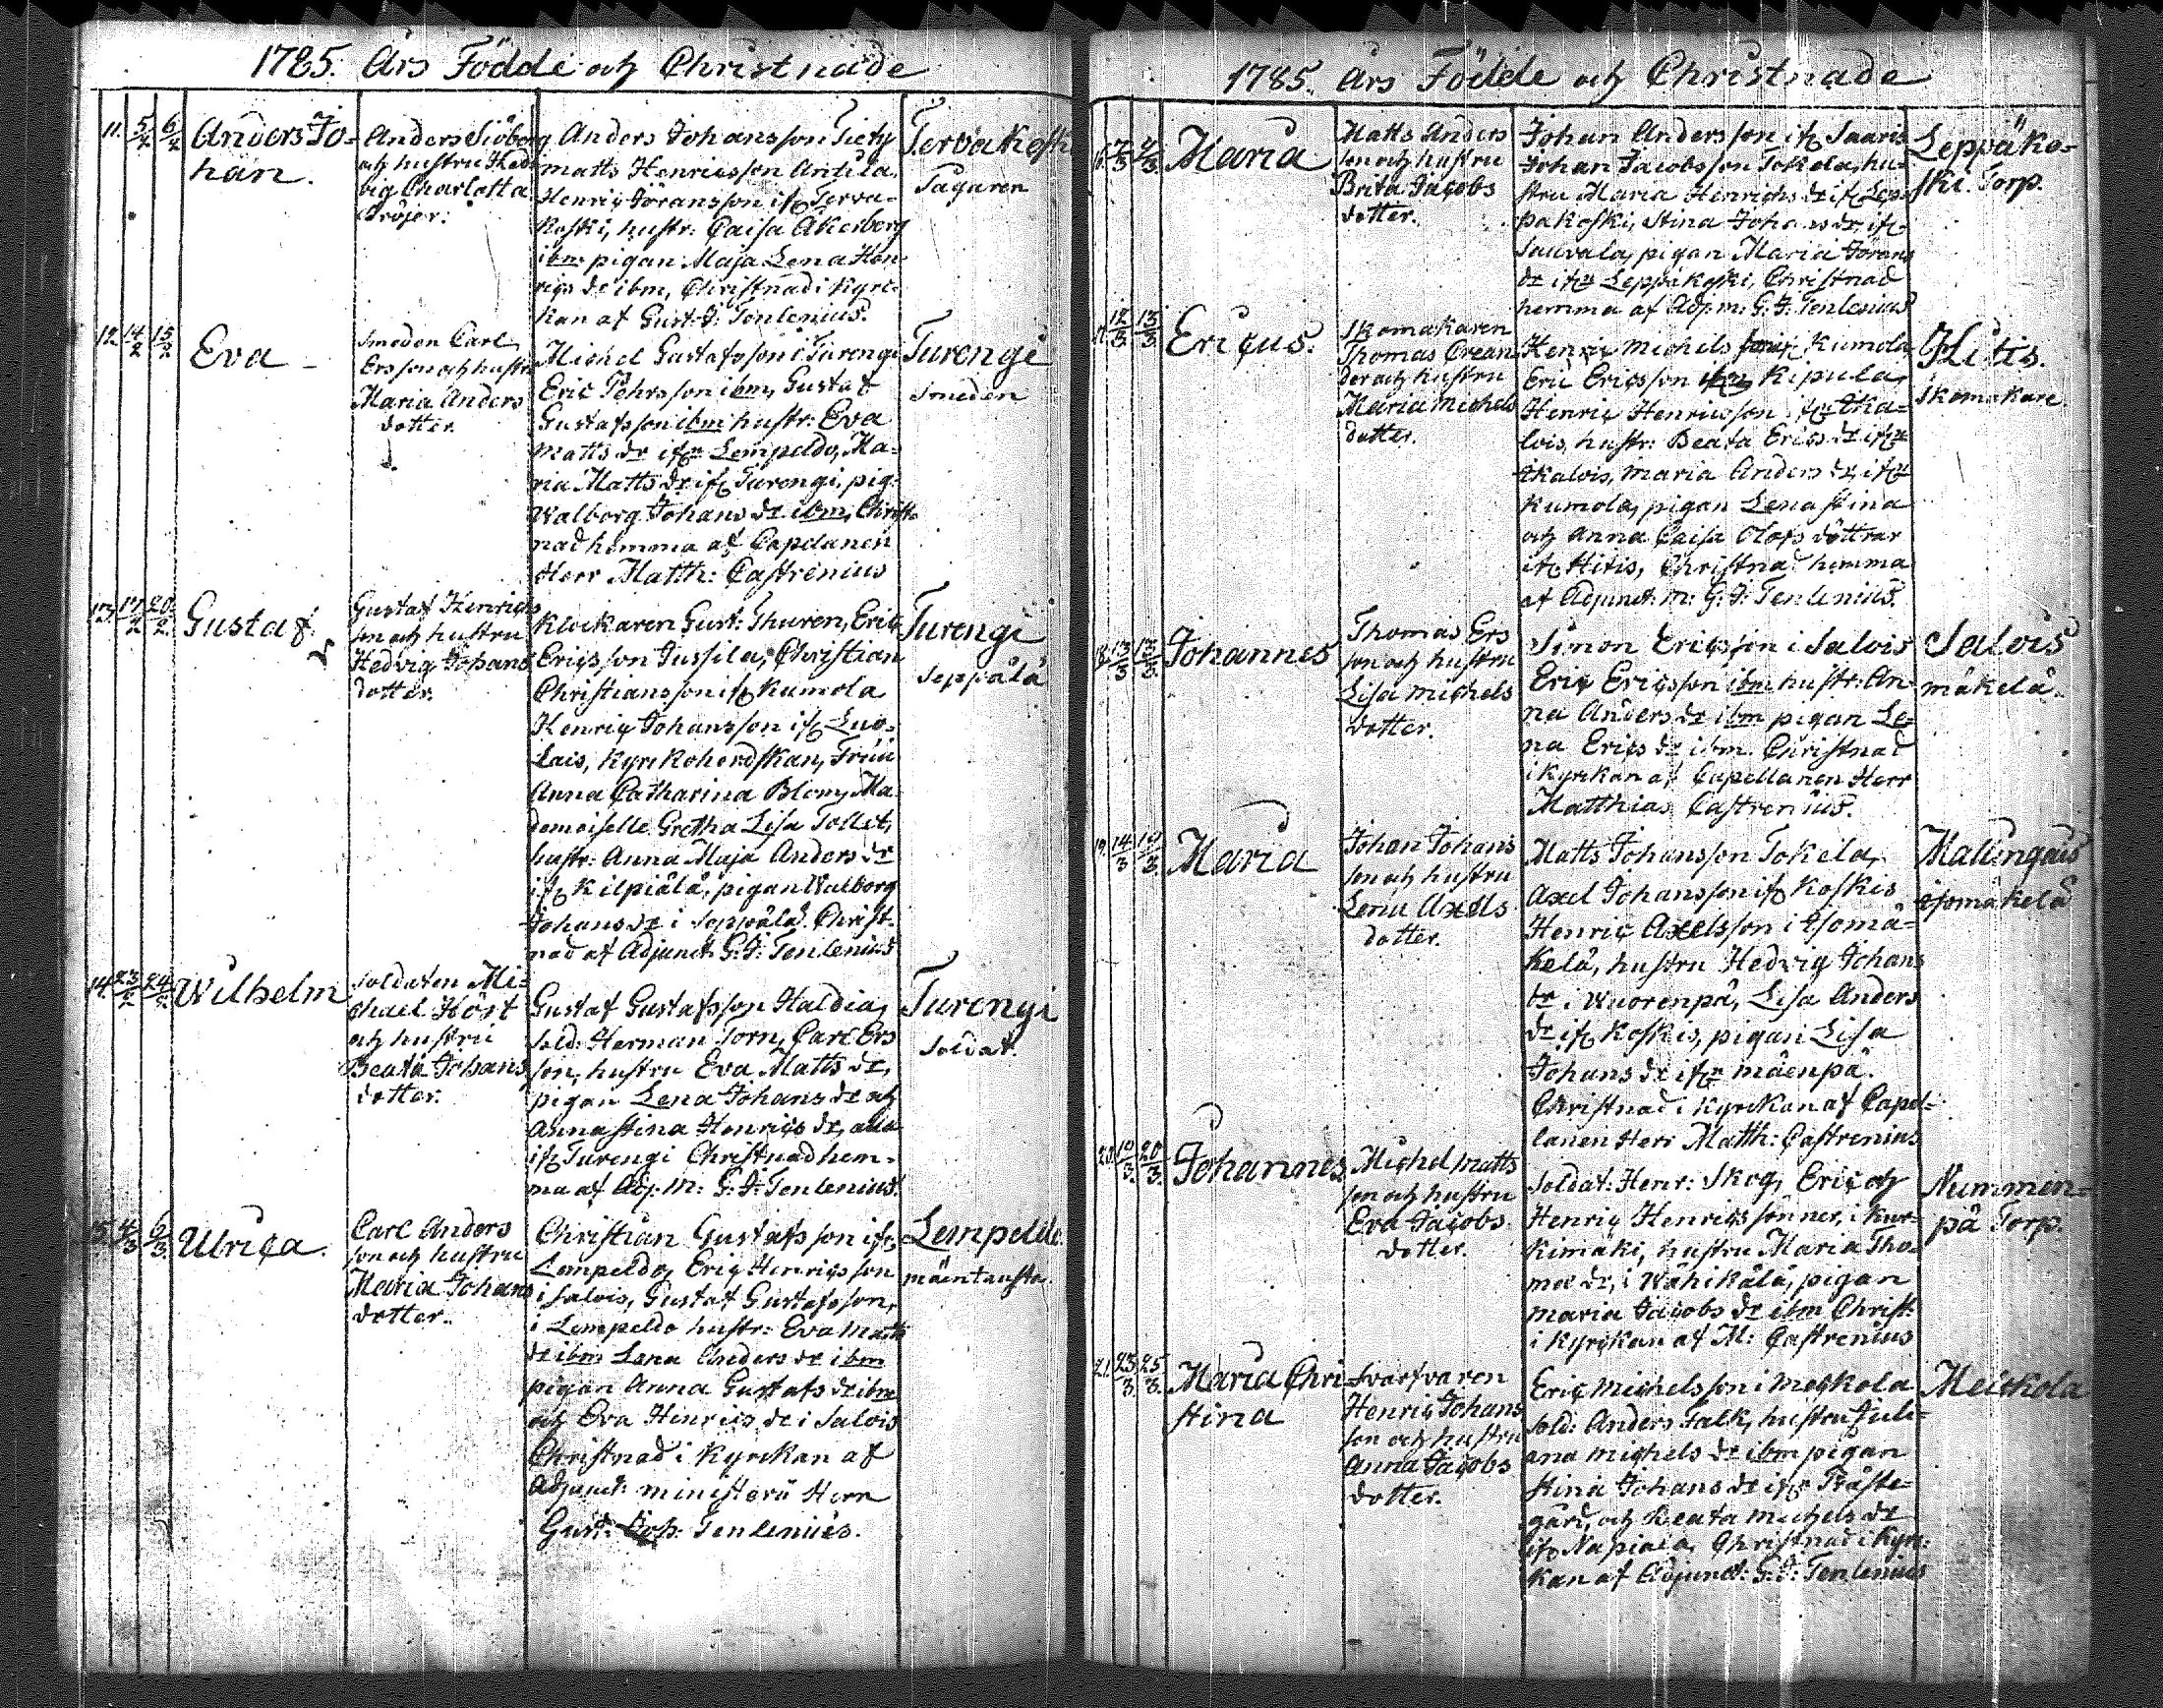 1785. Års Födde och Christnade
11. 5/2 6/2
Anders Jo=
han.
Anders Siöberg
och hustru Hed
vig Charlotta
Dröjer:
Anders Johansson Tiety
matts Henricsson Antila,
Henric Jöransson ifr. Terva-
koski, hustr: Caisa Åkerberg
ibm pigan Maja Lena Hen
rics dr ibm, Christnad i kyrc-
kan af Gust. J. Tenlenius.
Tervakoski
Taguren
12 14/2 15/2
Eva
Smeden Carl
Ersson och hustru
Maria Anders
dotter.
Michel Gustafsson i Turengi
Eric Pehrsson ibm, Gustaf
Gustafsson ibm hustr: Eva
Matts dr ifrn Lempeldo, Ma=
ria Matts dr ifr Turengi, pig=
Walborg Johans dr ibm, Christ=
nad hemma af Capelanen
Herr Matth: Castrenius
Turengi
Smeden
13. 17/2 20/2
Gustaf.
Gustaf Henrics
son och hustru
Hedvig Johans
dotter.
Klockaren Gust: Thuren, Eric
Ericsson Jussila, Christian
Christiansson ifr Kumola
Henric Johansson ifr Luo=
lais, kyrkoherdskan, Fruu
Anna Catharina Blom, Ma=
demoiselle Gretha Lisa Tollet,
hustr: Anna Maja Anders dr
ifr Kilpiälä, pigan Walborg
Johans dr i Seppälä. Christ=
nad af Adjunct. G: J: Tenlenius
Turengi
Seppälä
14. 23/2 24/2
Wilhelm
Soldaten Mi=
chael Höst
och hustru
Beata Johans
dotter.
Gustaf Gustafsson Haldia,
Sold: Herman Torn, Carl Ers
son, hustru Eva Matts dr,
pigan Lena Johans dr och
Anna Stina Henrics dr, alla
ifr Turengi Christnad hem=
ma af Adj: M: G: J: Tenlenius.
Turengi
Soldat.
15. 4/3 6/3
Ulrica.
Carl Anders
son och hustru
Maria Johans
dotter.
Christian Gustafsson ifr
Lempeldo, Eric Henricsson
i Salois, Gustaf Gustafsson,
i Lempeldo hustr: Eva Matts
dr ibm Lena Anders dr ibm
pigan Anna Gustafs dr ibm
och Eva Henrics dr i Salois
Christnad i kyrckan af
Adjunct: ministerii Herr
Gust: Tenlenius.
Lempeldo.
mäentausta.
1785. Års Födde och Christnade
16. 7/3
Maria
Matts Anders
son och hustru
Brita Jacobs
dotter.
Johan Andersson ifr Saaris
Johan Jacobsson Tokola, hu=
stru Maria Henrichs dr ifr Lep=
päkoski, Stina Johans dr ifr
Sauvala, pigan Maria Jörans
dr ifrn Leppäkoski, Christnad
hemma af Adj: m: G: J: Tenlenius
Leppäko=
ski. Torp.
17. 12/3 13/3
Ericus.
Skomakaren
Thomas Crean
der och hustru
Maria Michels
dotter.
Henric Michels Kumola,
Eric Ericsson ifrn Kipula,
Henric Henricsson ifrn Ika=
lois, hustr: Beata Erics dr ifrn
Ikalois, Maria Anders dr, ifrn
Kumola, pigan Lena Stina
och Anna Caisa Olofs döttrar
ifr Hitis, Christnad hemma
af Adjunct. m: G: J: Tenlenius.
Hitis.
Skomakare.
18. 13/3 13/3
Johannes
Thomas Ers
son och hustru
Lisa Michels
dotter.
Simon Ericsson i Salois
Eric Ericsson ibm hustr: An=
na Anders dr ibm pigan Le=
na Erics dr ibm. Christnad
i kyrkan af Capellanen Herr
Matthias Castrenius.
Salois
mäkelä.
19. 14/3
Maria
Johan Johans
son och hustru
Lena Axels
dotter.
Matts Johansson Tokela,
Axel Johansson ifr Koskis
Henric Axelsson i Isomä=
kelä, hustru Hedvig Johans
dr i Wuorenpä, Lisa Anders
dr ifr Koskis, pigan Lisa
Johans dr ifrn mäenpä.
Christnad i kyrckan af Capel=
lanen Herr Matth: Castrenius
Mallingais
isomäkelä
20. 19/3 20/3
Johannes
Michel Matts
son och hustru
Eva Jacobs
dotter.
Soldat: Henr: Skog, Eric och
Henric Henrics sönner, i Kur=
kimäki, hustru Maria Tho=
mæ dr, i Wähikälä, pigan
Maria Jacobs dr ibm Christ:
i kyrckan af M: Castrenius
Nummen=
pä Torp.
21. 23/3 25/3
Maria Chri
stina
Svarfvaren
Henric Johans
son och hustru
Anna Jacobs
dotter.
Eric Michelsson i Meckola
Sold: Anders Falk, hustru Juli=
ana Michels dr ibm pigan
Stina Johans dr ifrn Präste=
gård, och Beata Michels dr
ifr Napiala, Christnad i kyrc:
kan af Adjunct: G: J: Tenlenius
Meckola